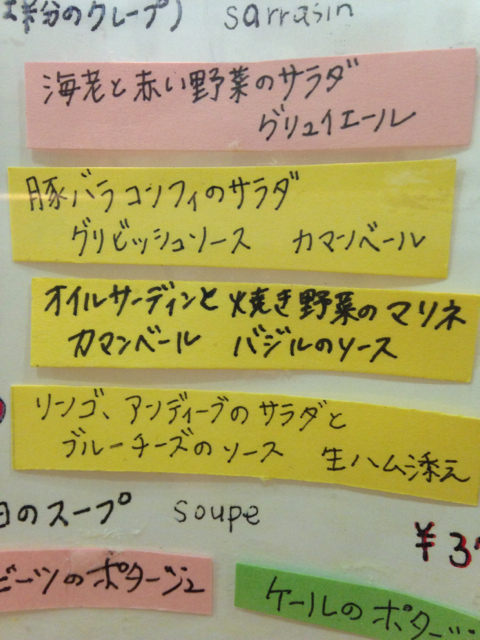 半分のクレープ) sarrasin
海老と赤い野菜のサラダ
グリュイエール
豚バラコンフィのサラダ
グリビッシュソース カマンベール
オイルサーディンと焼き野菜のマリネ
カマンベール バジルのソース
リンゴ、アンディーブのサラダと
ブルーチーズのソース 生ハム添え
日のスープ soupe
¥3
ビーツのポタージュ
ケールのポタ